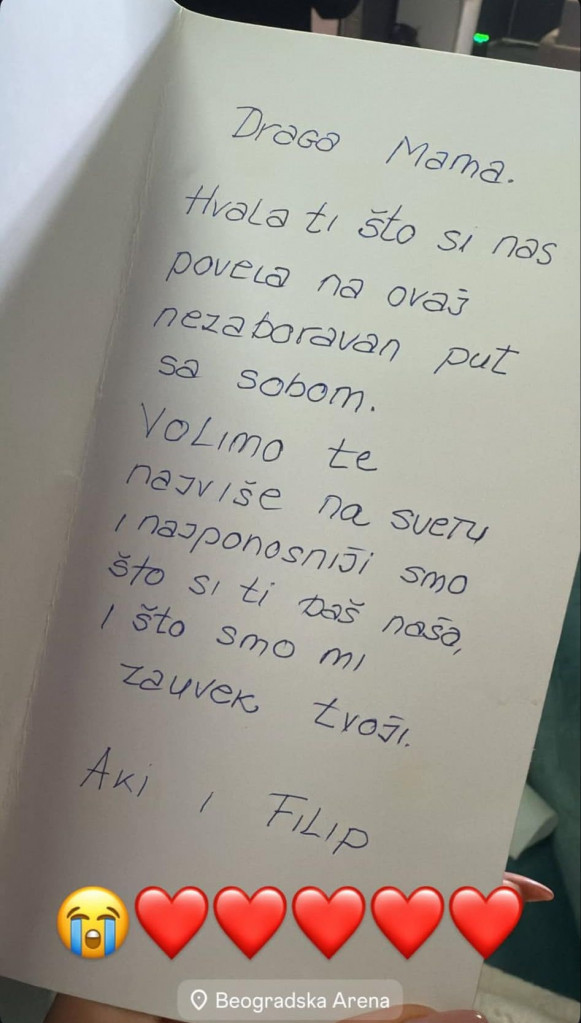 Draga Mama.
Hvala ti što si nas
povela na ovaj
nezaboravan put
sa sobom.
Volimo te
najviše na svetu
i najponosniji smo
što si ti baš naša,
i što smo mi
zauvek tvoji.
Aki i Filip
😭❤️❤️❤️❤️❤️
Beogradska Arena